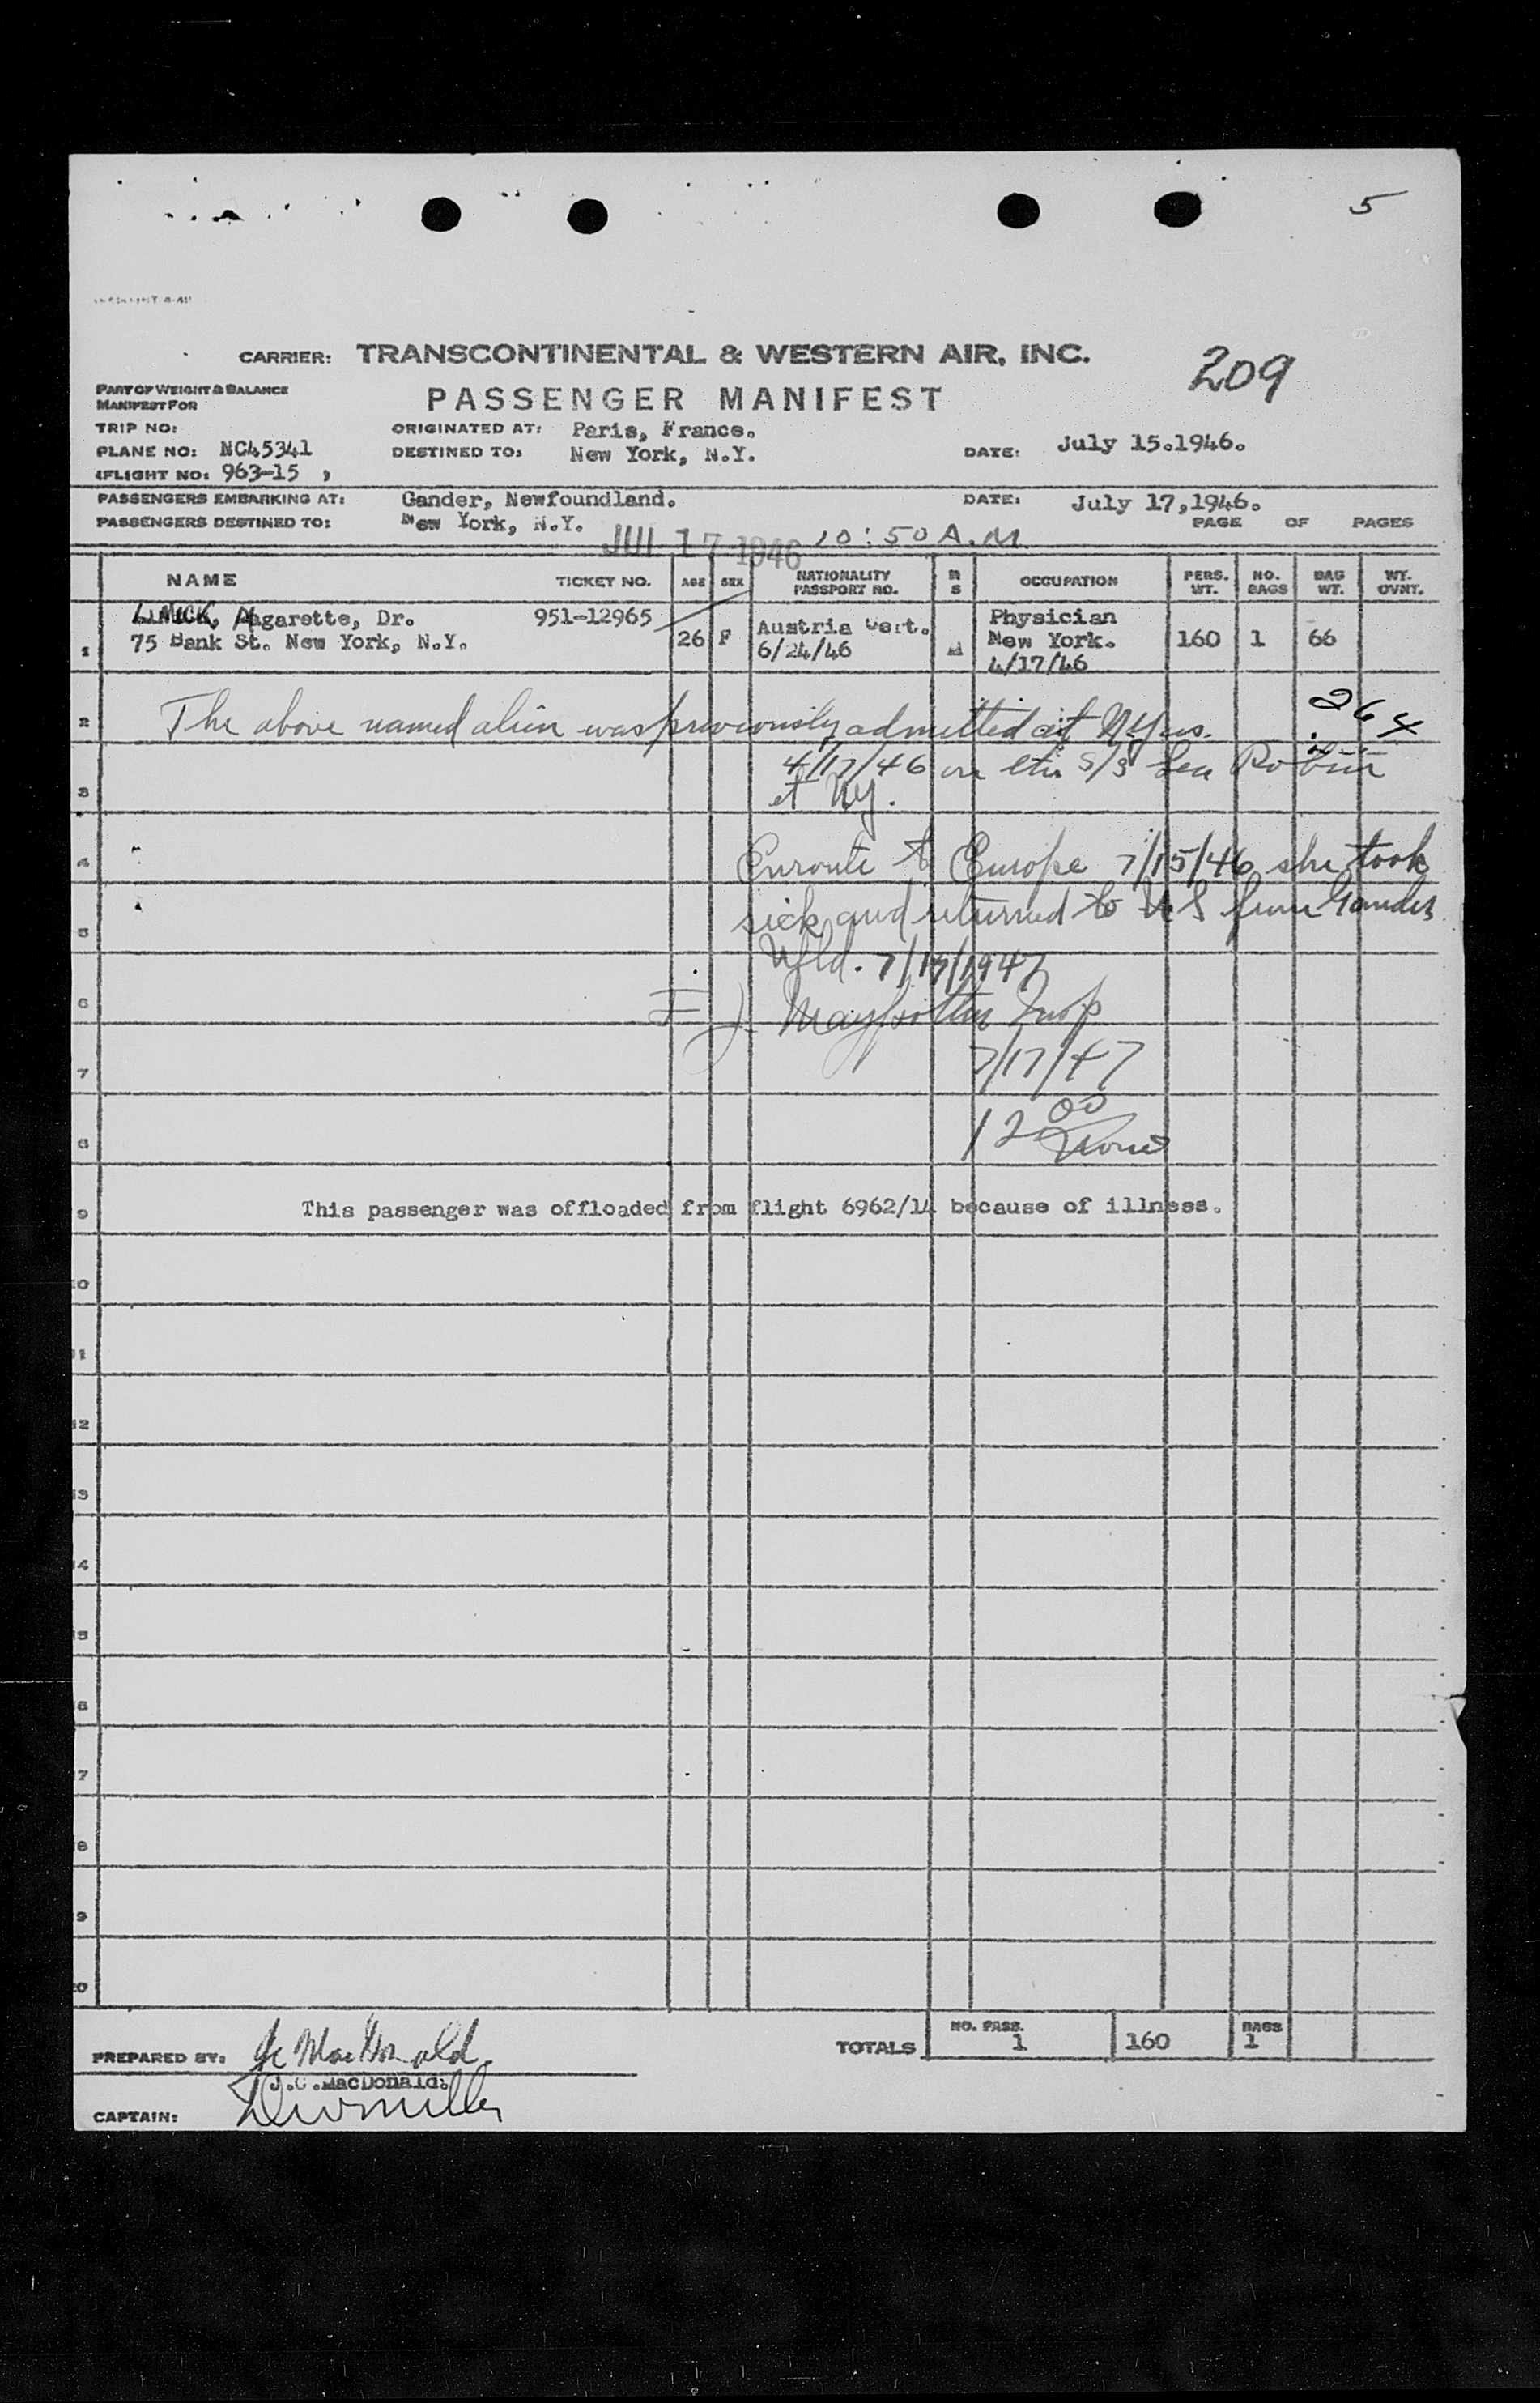 5
CARRIER: TRANSCONTINENTAL & WESTERN AIR, INC.
209
PART OF WEIGHT & BALANCE
MANIFEST FOR
PASSENGER MANIFEST
TRIP NO:
ORIGINATED AT: Paris, France.
PLANE NO: NC45341
DESTINED TO: New York, N.Y.
DATE: July 15.1946.
(FLIGHT NO: 963-15 )
PASSENGERS EMBARKING AT: Gander, Newfoundland.
DATE: July 17,1946.
PASSENGERS DESTINED TO: New York, N.Y.
PAGE OF PAGES
JUL 17 1946 10:50 A.M
NAME TICKET NO. AGE SEX NATIONALITY PASSPORT NO. M S OCCUPATION PERS. WT. NO. BAGS BAG WT. WT. OVNT.
Magarette, Dr. 951-12965
75 Bank St. New York, N.Y.
1 26 F Austria Cert. 6/24/46 M Physician New York. 4/17/46 160 1 66
2 The above named alien was previously admitted at NY
264
4/17/46 on the S/S Sea Robin
3 at NY.
4 Enroute to Europe 7/15/46 she took
5 sick and returned to U S from Gander
Nfld. 7/17/1947
6 F J Insp
7 7/17/47
8 12 00
9 This passenger was offloaded from flight 6962/14 because of illness.
10
11
12
13
14
15
16
17
18
19
20
TOTALS NO. PASS. 1 160 BAGS 1
PREPARED BY: Jc MacDonald.
J.C.MacDonald.
CAPTAIN: